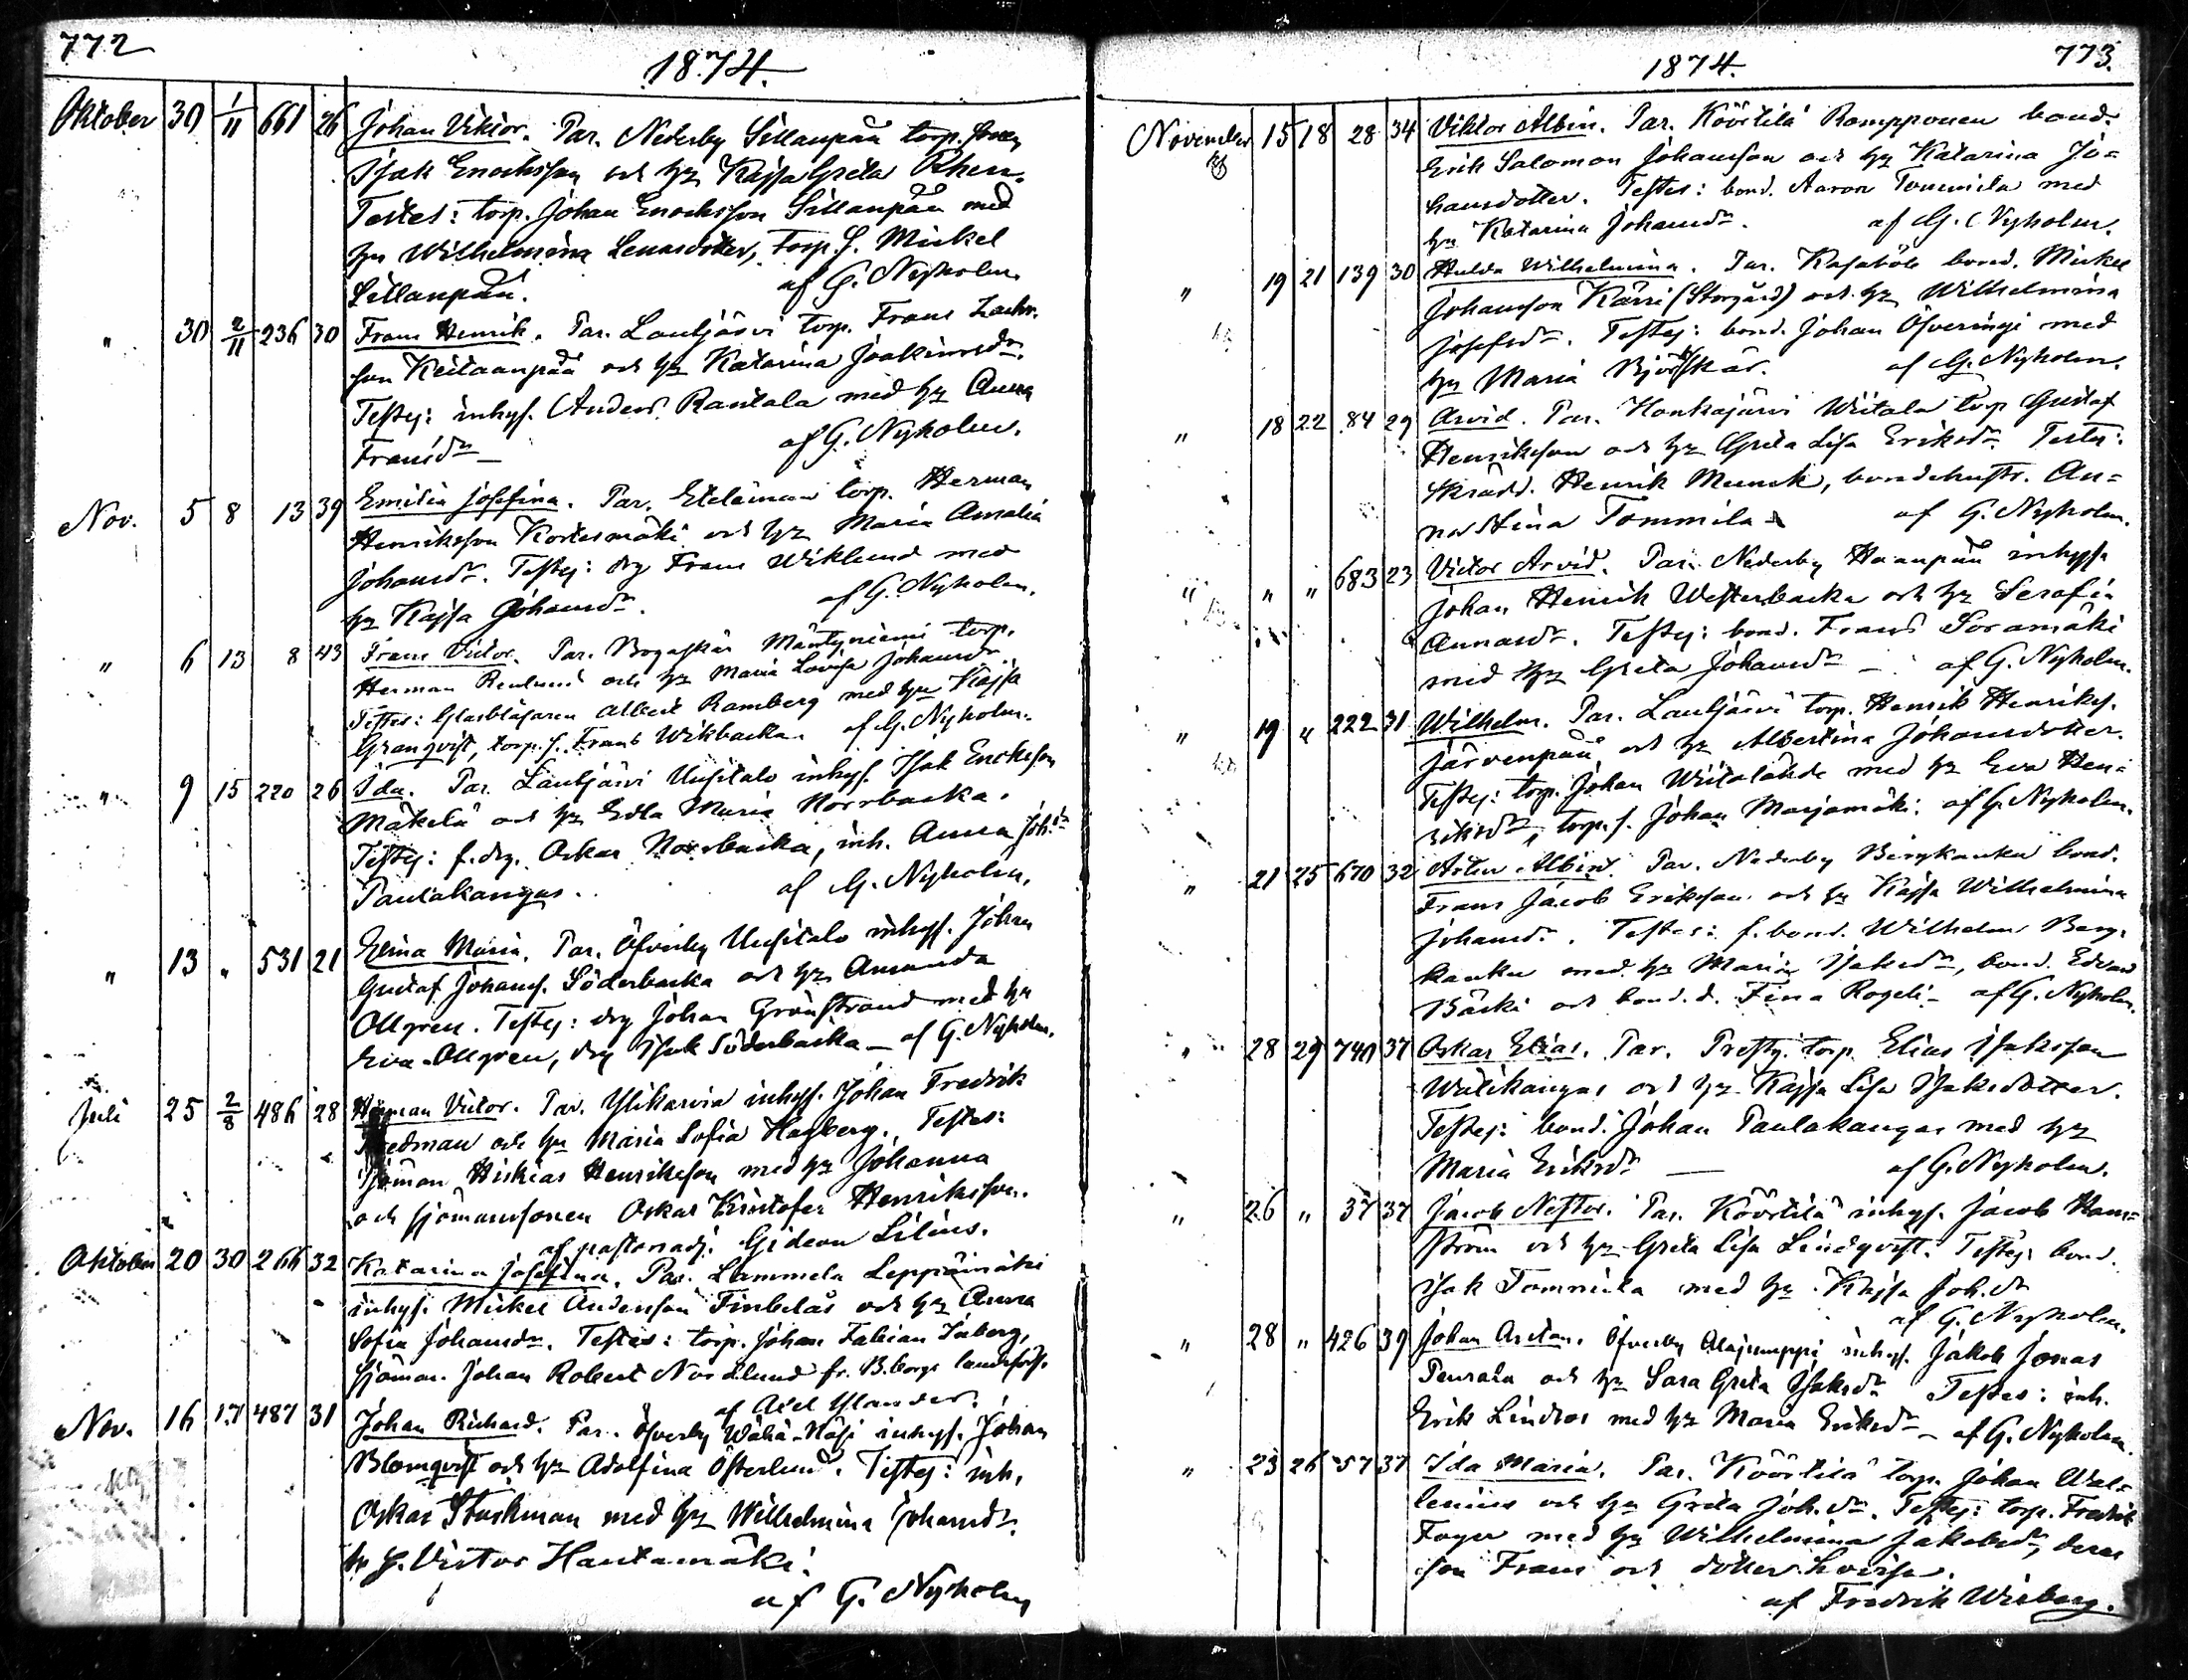 772
1874.
Oktober 30 1/11 661 26 Johan Viktor. Par. Nederby Sillanpää torp. son
Isak Enochsson och hu Kajsa Greta Rhen.
Testes: torp. Johan Enochsson Sillanpää med
hu Wilhelmina Lenasdotter, Torp. s. Mickel
Sillanpää. af G. Nyholm.
" 30 2/11 236 30 Frans Henrik. Par. Lautjärvi torp. Frans Zachr.
son Keitaanpää och hu Katarina Joakimsdr.
Testes: inhys. Anders Rantala med hu Anna
Fransdr — af G. Nyholm.
Nov. 5 8 13 39 Emilia Josefina. Par. torp. Herman
Henriksson Kortesmäki och hu Maria Amalia
Johansdr. Testes: drg Frans Wiklund med
hu Kajsa Johansdr. af G. Nyholm.
" 6 13 8 43 Frans Victor. Par. Mäntyniemi torp.
Herman Renlund och hu Maria Lovisa Johansdr.
Testes: Glasblåsaren Albert Ramberg med hu Kajsa
Granqvist, torp. s. Frans Wikbacka. af G. Nyholm.
" 9 15 220 26 Ida. Par. Lautjärvi Uusitalo inhys. Isak Ericksson
Mäkelä och hu Edla Maria Norrbacka.
Testes: f. drg. Oskar Norrbacka, inh. Anna Joh.dr
Pautakangas. af G. Nyholm.
" 13 " 531 21 Elina Maria. Par. Öfverby Uusitalo inhys. Johan
Gustaf Johans. Söderbacka och hu Amanda
Ollgren. Testes: drg Johan Grönstrand med hu
Eva Ollgren, drg Isak Söderbacka — af G. Nyholm.
Juli 25 2/8 486 28 Herman Victor. Par. Ylikarvia inhys. Johan Fredrik
och hu Maria Sofia Hagberg. Testes:
Sjöman Hiskias Henriksson med hu Johanna
och sjömanssonen Oskar Kristofer Henriksson.
af pastorsadj. Gideon Lilius.
Oktober 20 30 266 32 Katarina Josefina. Par. Lammela Leppämäki
inhys. Mickel Andersson Finbelås och hu Anna
Sofia Johansdr. Testes: torp. Johan Fabian Isberg,
sjöman. Johan Robert Nordlund fr. B.borgs landsförs.
af Axel Ylander.
Nov. 16 17 487 31 Johan Richard. Par. Öfverby Wähä-Näsi inhys. Johan
Blomqvist och hu Adolfina Österlund. Testes: inh.
Oskar Stockman med hu Wilhelmina Johansdr.
Victor Hautamäki.
af G. Nyholm
1874.
773.
November 15 18 28 34 Viktor Albin. Par. Köörtilä Rampponen bond.
Erik Salomon Johansson och hu Katarina Jo=
hansdotter. Testes: bond. Aaron Tommila med
hu Katarina Johansdr. af G. Nyholm.
" 19 21 139 30 Hulda Wilhelmina. Par. Kasaböle bond. Mickel
Johansson Kärri (Storgård) och hu Wilhelmina
Josefsdr. Testes: bond. Johan Öfveringi med
hu Maria Björkskär. af G. Nyholm.
" 18 22 84 29 Arvid. Par. Honkajärvi Wiitala torp Gustaf
Henriksson och hu Greta Lisa Eriksdr Testes:
Skrädd. Henrik Munck, bondehustr. An=
na Stina Tommila af G. Nyholm.
" " " 683 23 Victor Arvid. Par. Nederby Haanpää inhyss
Johan Henrik Westerbacka och hu Serafia
Annasdr. Testes: bond. Frans Soramäki
med hu Greta Johansdr — af G. Nyholm.
" 19 " 222 31 Wilhelm. Par. Lautjärvi torp. Henrik Henriks.
Järvenpää och hu Albertina Johansdotter.
Testes: torp. Johan Wiitalähde med hu Eva Hen=
riksdr, torp. s. Johan Marjamäki. af G. Nyholm.
" 21 25 670 32 Artur Albin. Par. Nederby Bergkanka bond.
Frans Jacob Eriksson och hu Kajsa Wilhelmina
Johansdr. Testes: f. bond. Wilhelm Berg=
kanka med hu Maria Isaksdr, bond. Edvard
Bäcki och bond. d. Fina Rogeli — af G. Nyholm.
" 28 29 740 37 Oskar Elias. Par. Torp Elias Isaksson
Wälikangas och hu Kajsa Lisa Isaksdotter.
Testes: bond. Johan Pautakangas med hu
Maria Eriksdr — af G. Nyholm.
" 26 " 37 37 Jacob Nestor. Par. Köörtilä inhys. Jacob Ham=
ström och hu Greta Lisa Lindqvist. Testes: bond.
Isak Tommila med hu Kajsa Joh.dr
af G. Nyholm.
" 28 " 426 39 Johan Arstan. Öfverby Alajumppi inhys. Jakob Jonas
Penrala och hu Sara Greta Isaksdr Testes: inh.
Erik Lindros med hu Maria Eriksdr — af G. Nyholm.
" 23 26 57 37 Ida Maria. Par. Köörtilä torp. Johan Wal=
lenius och hu Greta Joh.dr. Testes: torp. Fredrik
Foger med hu Wilhelmina Jakobsdr, deras
son Frans och dotter Lovisa.
af Fredrik Wiberg.